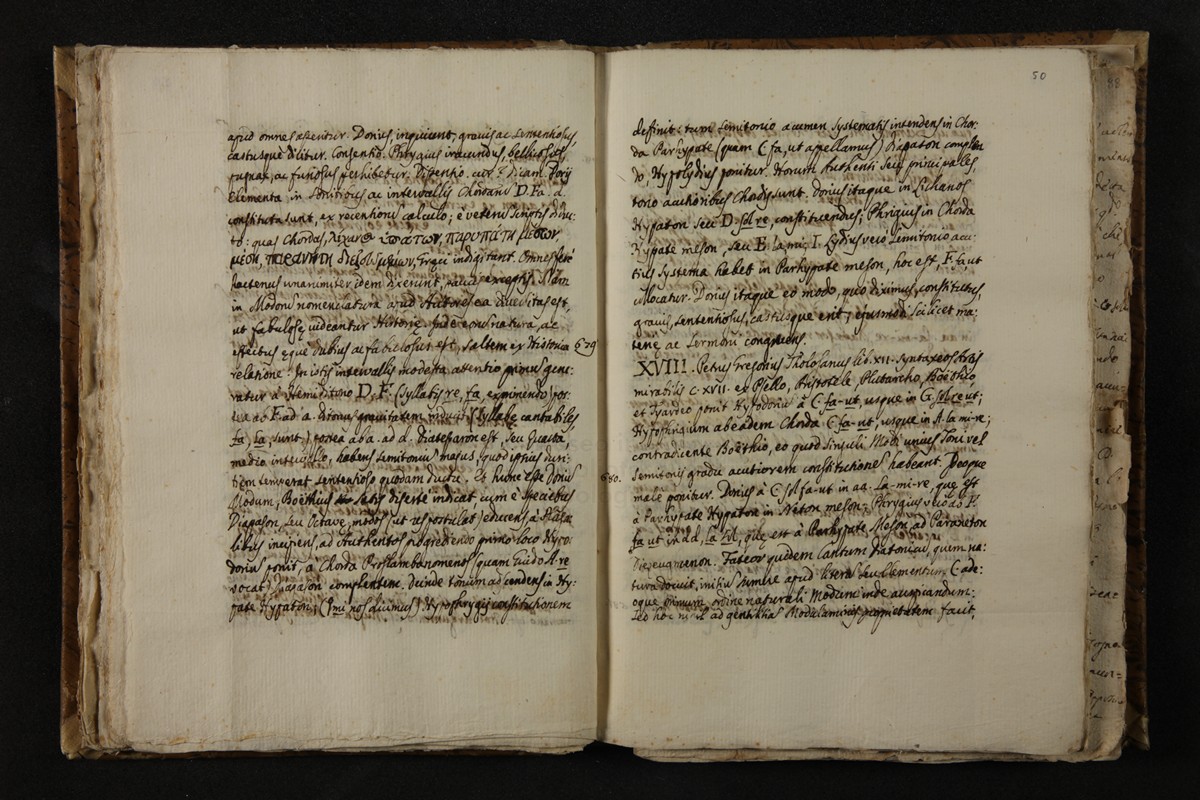 apud omnes asseritur. Dorius, inquiunt, gravis ac sententiosus,
castusque dicitur. Consentio. Phrygius iracundus, bellicosus,
rapax, ac furiosus perhibetur. Dissentio. cur? Dicam. Dorij
Elementa in sonitibus ac intervallis Chordarum D. Fa. d.
constituta sunt, ex recentiorum calculo; è veterum scriptis
to: quas Chordas, λίχανον ὑπατων, παρυπάτη μέσων,
μέση, παρανήτη διεζευγμένων, Graeci indigitant. Omnes ferè
hactenus unanimiter idem dixerunt, paucis exceptis. Nam
in Modorum nomenclatura apud Autores ea diversitas est,
ut fabulosę videantur Historię. Inde eorum natura, ac
effectus ęque dubius ac fabulosus est, saltem ex Historia 679
relatione. In istis intervallis modesta attentio primus gene:
ratur à Semiditono D. F. (syllabis re, fa, exprimendo) pos:
tea ab F. ad a. Ditonus gravitatem inducit (syllabę cantabiles,
fa, la, sunt) postea ab a. ad d. Diatessaron est, seu Quarta,
medio intervallo, habens semitonium majus, quod istius duri:
tiem temperat sententioso quodam ductu. Et hunc esse Dorium
Modum, Boëthius satis disertè indicat cum è speciebus
Diapason, seu Octavę, modos (ut res postulat) educens à Plaga:
libus incipiens, ad Authentos progrediendo primo loco Hypo:
dorium ponit, à Chorda Proslambanomenos (quam Guido A-re
vocat) Diapason complentem. Deinde tonum ad cendens in Hy:
pate Hypaton, (♮mi nos dicimus) Hypophrygij constitutionem
50
definit: tum semitonio acumen systematis intendens in Chor:
da Parhypate (quam C fa, ut appellamus) Diapason complen
do, Hypolydius ponitur. Horum Authenti seu principales,
totio authoribus Chordis sunt. Dorius itaque in Lichanos
Hypaton seu D. sol re, constituendus; Phrigius in Chorda
Hypate meson, seu E la mi; Lydius vero semitonio acu:
tius systema habet in Parhypate meson, hoc est, F. fa, ut
collocatur. Dorius itaque eo modo, quo diximus, constitutus,
gravis, sententiosus, castusque erit; ejusmodi scilicet ma:
terię ac sermoni congruens.
XVIII. Petrus Gregorius Tholosanus lib. XII. Syntaxeos Artis
mirabilis c. XVII. ex Psello, Aristotele, Plutarcho, Boëthio
et ponit Hypodorium à C fa-ut, usque in G. sol re ut;
Hypophrigium ab eadem Chorda C fa-ut, usque in A. la mi-re;
contradicente Boëthio, eo quod singuli Modi unius Toni vel
680. semitonij gradu acutiorem constitutionem habeant. Deoque
male ponitur. Dorius à C sol fa-ut in aa. la-mi-re, que est
à Parhypate Hypaton in Neton meson; Phrygius verò ab F.
fa ut in dd, la sol, quę est à Parhypate Meson ad Paraneton
Diezeugmenon. Fateor quidem Cantum Diatonicum, quem na:
tura docuit, initium sumere apud literas seu Elementum C ade:
oque omnium ordine naturali Modum inde auspicandum:
sed hoc nihil ad gentilitas Modulaminis proprietatem facit,